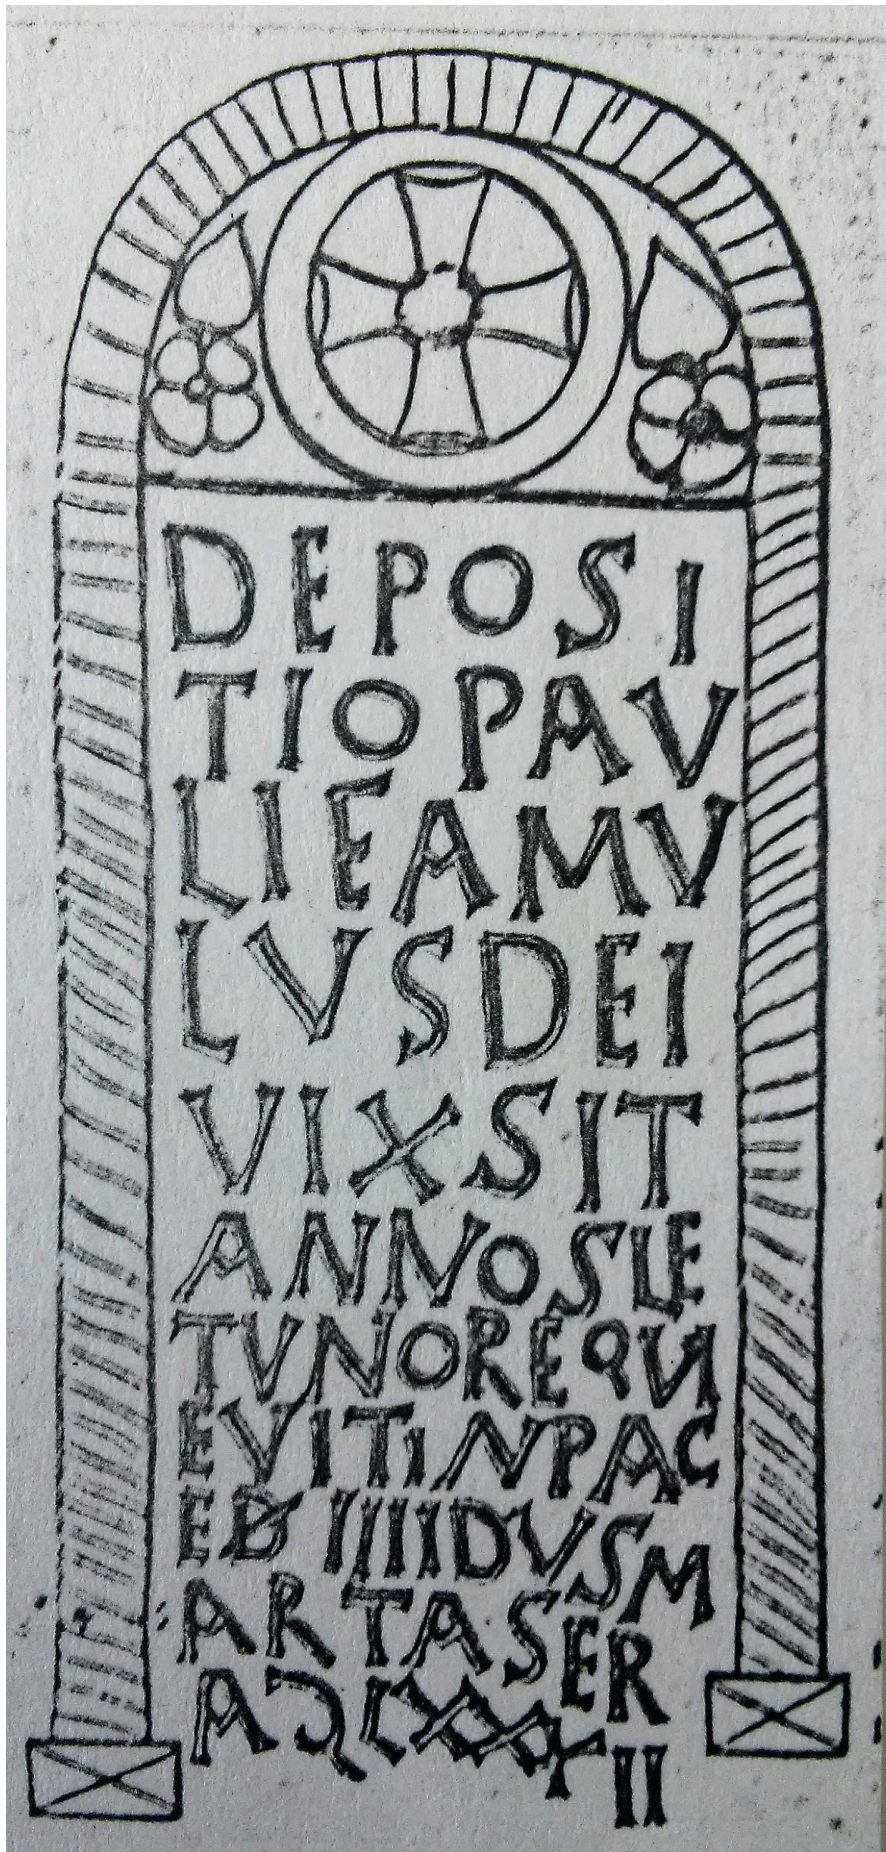 DEPOSI
TIOPAV
LIEAMV
LVSDEI
VIXSIT
ANNOSLE
TVNOREQVI
EVITINPAC
EDIIIIDVSM
ARTASER
AƆLXXXII